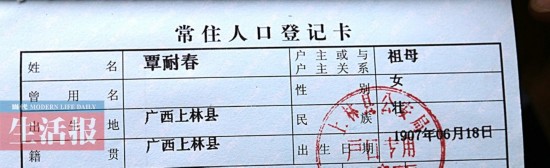 常住人口登记卡
姓名 覃耐春 户主或与户主关系 祖母
曾用名 性别 女
出生地 广西上林县 民族 壮
籍贯 广西上林县 出生日期 1907年06月18日
上林县公安局
户口专用
MODERN LIFE DAILY
生活报